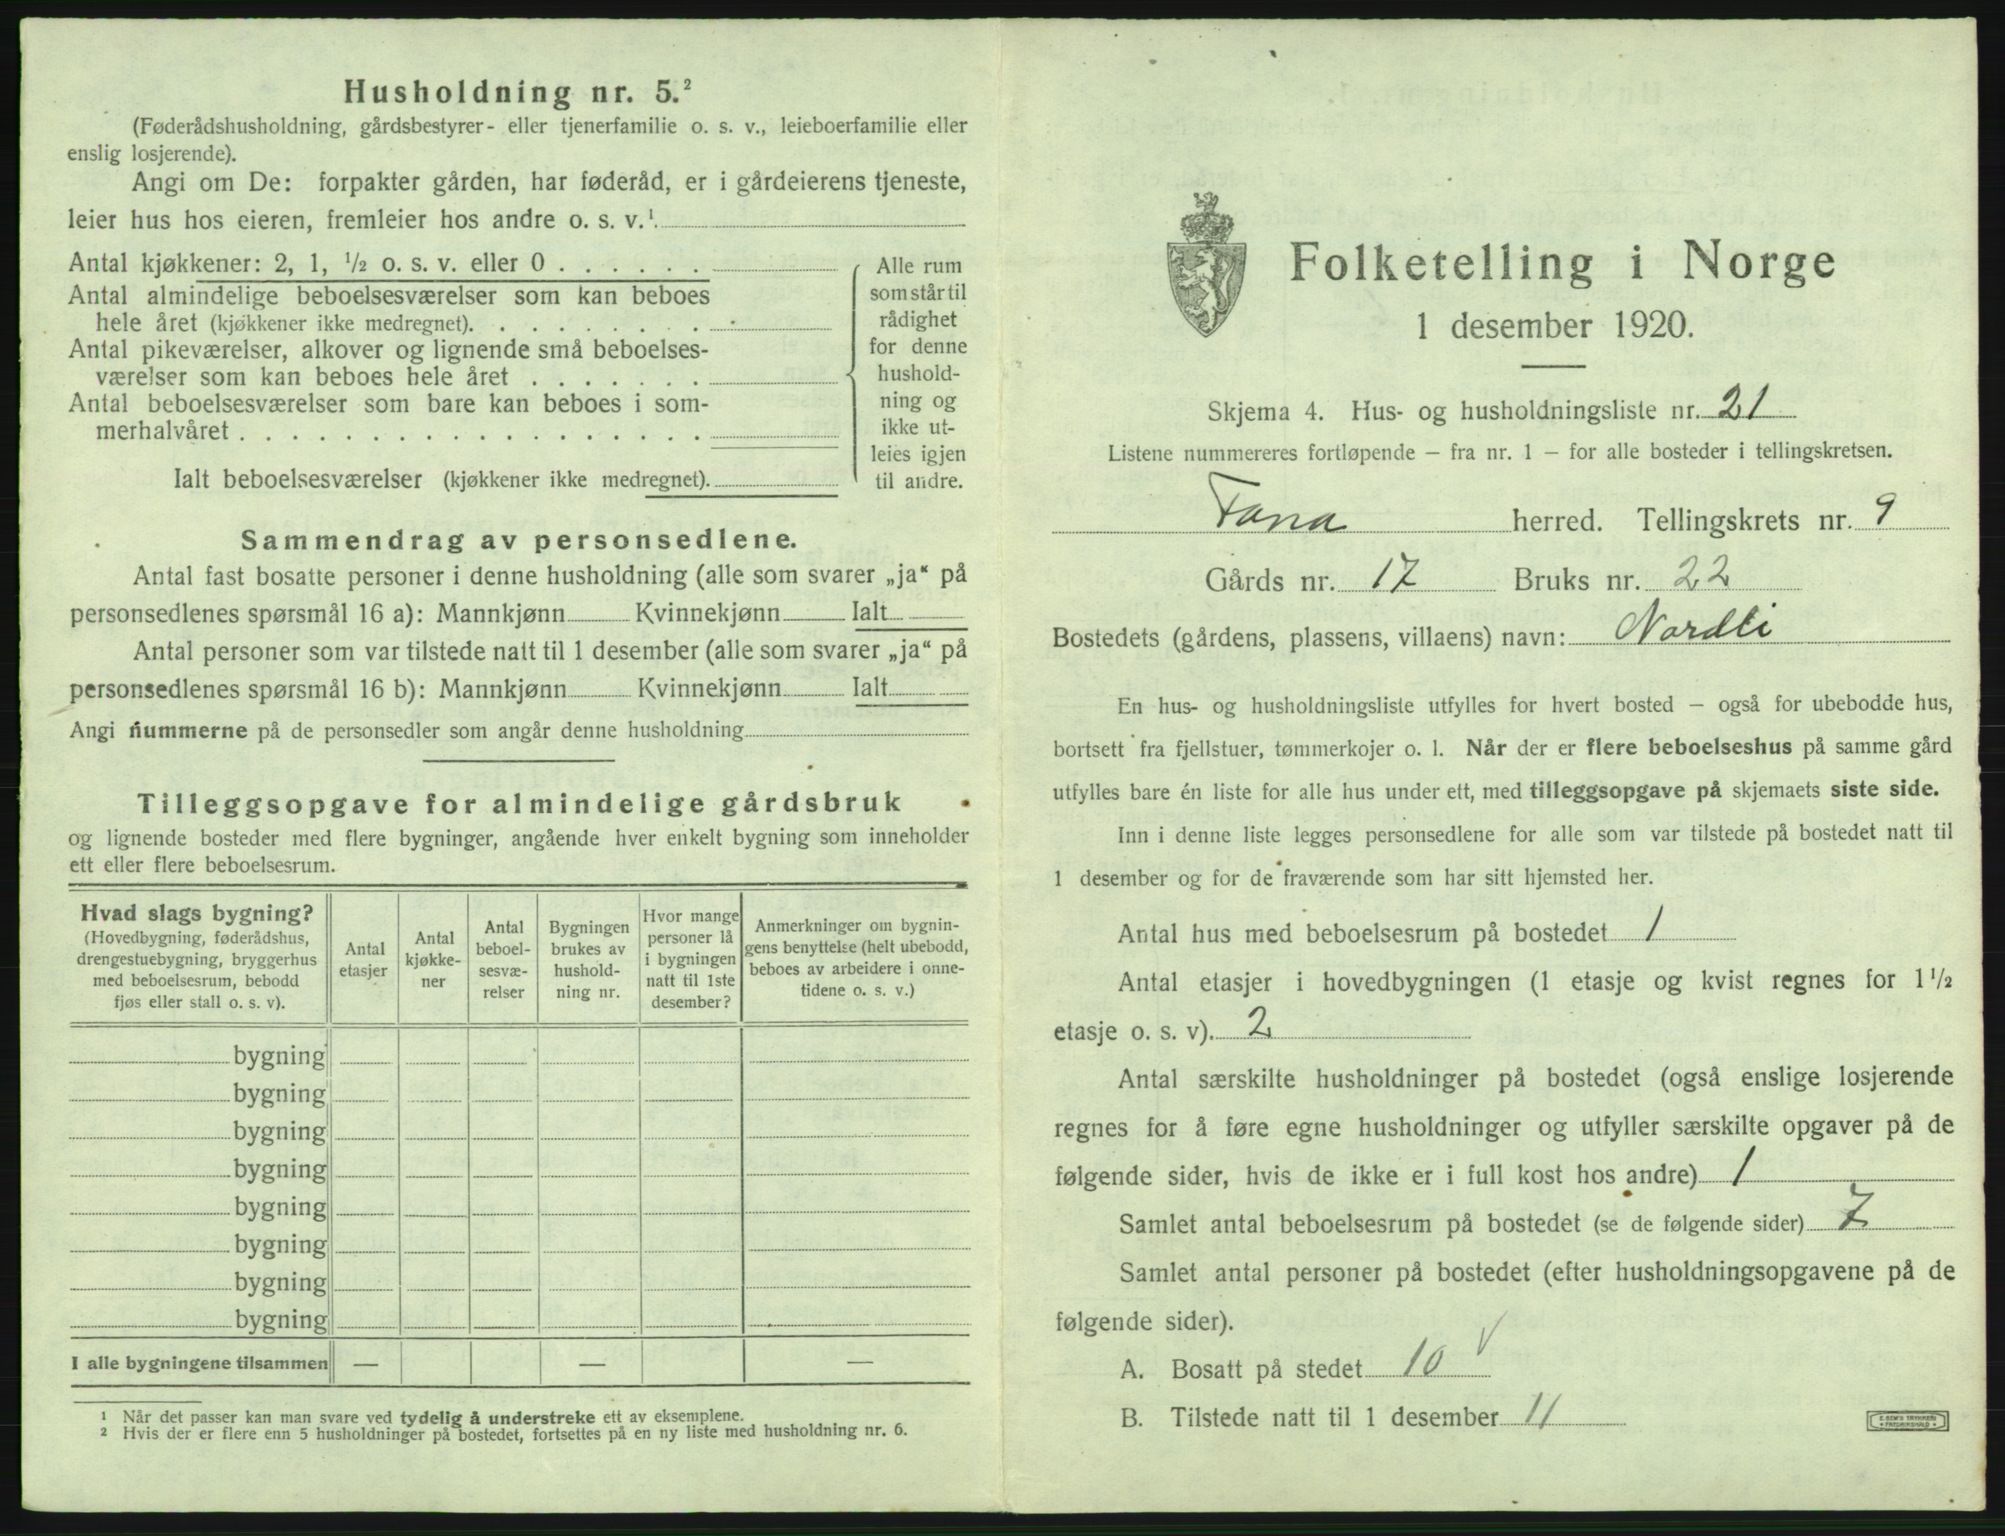 Husholdning nr. 5.²
(Føderådshusholdning, gårdsbestyrer- eller tjenerfamilie o. s. v., leieboerfamilie eller
enslig losjerende).
Angi om De: forpakter gården, har føderåd, er i gårdeierens tjeneste,
leier hus hos eieren, fremleier hos andre o. s. v.¹
Antal kjøkkener: 2, 1, ½ o. s. v. eller 0 . . . . . .
Antal almindelige beboelsesværelser som kan beboes
hele året (kjøkkener ikke medregnet). . . . . . . . .
Antal pikeværelser, alkover og lignende små beboelses-
værelser som kan beboes hele året . . . . . . .
Antal beboelsesværelser som bare kan beboes i som-
merhalvåret . . . . . . . . . . . . . . . . . .
Ialt beboelsesværelser (kjøkkener ikke medregnet).
Alle rum
som står til
rådighet
for denne
hushold-
ning og
ikke ut-
leies igjen
til andre.
Sammendrag av personsedlene.
Antal fast bosatte personer i denne husholdning (alle som svarer „ja“ på
personsedlenes spørsmål 16 a): Mannkjønn Kvinnekjønn Ialt
Antal personer som var tilstede natt til 1 desember (alle som svarer „ja“ på
personsedlenes spørsmål 16 b): Mannkjønn Kvinnekjønn Ialt
Angi nummerne på de personsedler som angår denne husholdning
Tilleggsopgave for almindelige gårdsbruk
og lignende bosteder med flere bygninger, angående hver enkelt bygning som inneholder
ett eller flere beboelsesrum.
Hvad slags bygning?
(Hovedbygning, føderådshus,
drengestuebygning, bryggerhus
med beboelsesrum, bebodd
fjøs eller stall o. s. v).
Antal
etasjer
Antal
kjøkke-
ner
Antal
beboel-
sesvæ-
relser
Bygningen
brukes av
hushold-
ning nr.
Hvor mange
personer lå
i bygningen
natt til 1ste
desember?
Anmerkninger om bygnin-
gens benyttelse (helt ubebodd,
beboes av arbeidere i onne-
tidene o. s. v.)
bygning
bygning
bygning
bygning
bygning
bygning
bygning
bygning
I alle bygningene tilsammen — — —
¹ Når det passer kan man svare ved tydelig å understreke ett av eksemplene.
² Hvis der er flere enn 5 husholdninger på bostedet, fortsettes på en ny liste med husholdning nr. 6.
Folketelling i Norge
1 desember 1920.
Skjema 4. Hus- og husholdningsliste nr. 21
Listene nummereres fortløpende — fra nr. 1 — for alle bosteder i tellingskretsen.
Fana herred. Tellingskrets nr. 9
Gårds nr. 17 Bruks nr. 22
Bostedets (gårdens, plassens, villaens) navn: Nordli
En hus- og husholdningsliste utfylles for hvert bosted — også for ubebodde hus,
bortsett fra fjellstuer, tømmerkojer o. l. Når der er flere beboelseshus på samme gård
utfylles bare én liste for alle hus under ett, med tilleggsopgave på skjemaets siste side.
Inn i denne liste legges personsedlene for alle som var tilstede på bostedet natt til
1 desember og for de fraværende som har sitt hjemsted her.
Antal hus med beboelsesrum på bostedet 1
Antal etasjer i hovedbygningen (1 etasje og kvist regnes for 1½
etasje o. s. v). 2
Antal særskilte husholdninger på bostedet (også enslige losjerende
regnes for å føre egne husholdninger og utfyller særskilte opgaver på de
følgende sider, hvis de ikke er i full kost hos andre) 1
Samlet antal beboelsesrum på bostedet (se de følgende sider) 7
Samlet antal personer på bostedet (efter husholdningsopgavene på de
følgende sider).
A. Bosatt på stedet 10 √
B. Tilstede natt til 1 desember 11